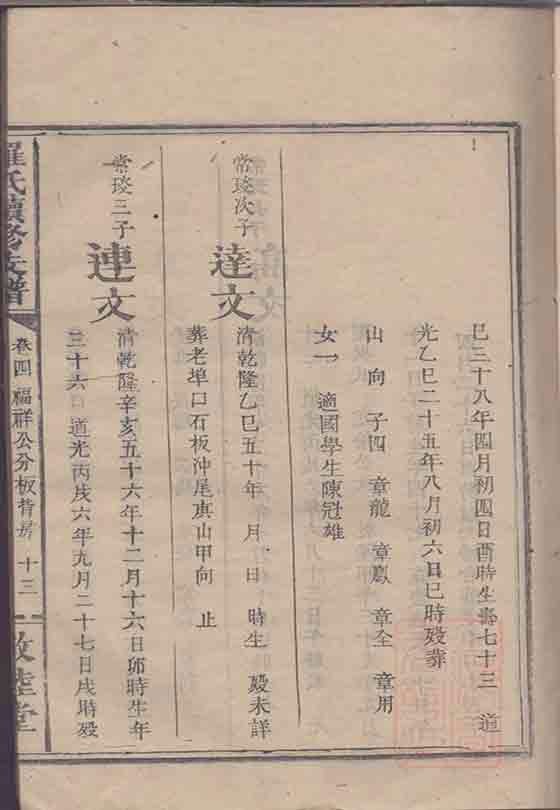 巳三十八年四月初四日酉時生壽七十三 道
光乙巳二十五年八月初六日巳時歿葬
山向 子四 章龍 章鳳 章全 章用
女一 適國學生陳冠雄
常琰次子 達文 清乾隆乙巳五十年 月 日 時生 歿未詳
葬老埠口石板沖尾庚山甲向 止
常琰三子 連文 清乾隆辛亥五十六年十二月十六日卯時生年
三十六 道光丙戌六年九月二十七日戌時歿
羅氏續修支譜 卷四 福祥公分板背房 十三 敦睦堂